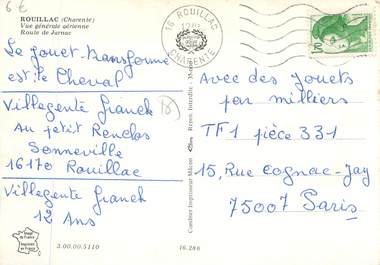 6€
ROUILLAC (Charente)
Vue générale aérienne
Route de Jarnac
Le jouet transformé
est le Cheval
Villegente Franck
Au petit Renclos
Sonneville
16170 Rouillac
Villegente Franck
12 Ans
16 ROUILLAC
CHARENTE
Avec des jouets
par milliers
TF1 pièce 331
15, Rue Cognac-Jay
75007 Paris
Combier Imprimeur Mâcon
3.00.00.5110
16.286